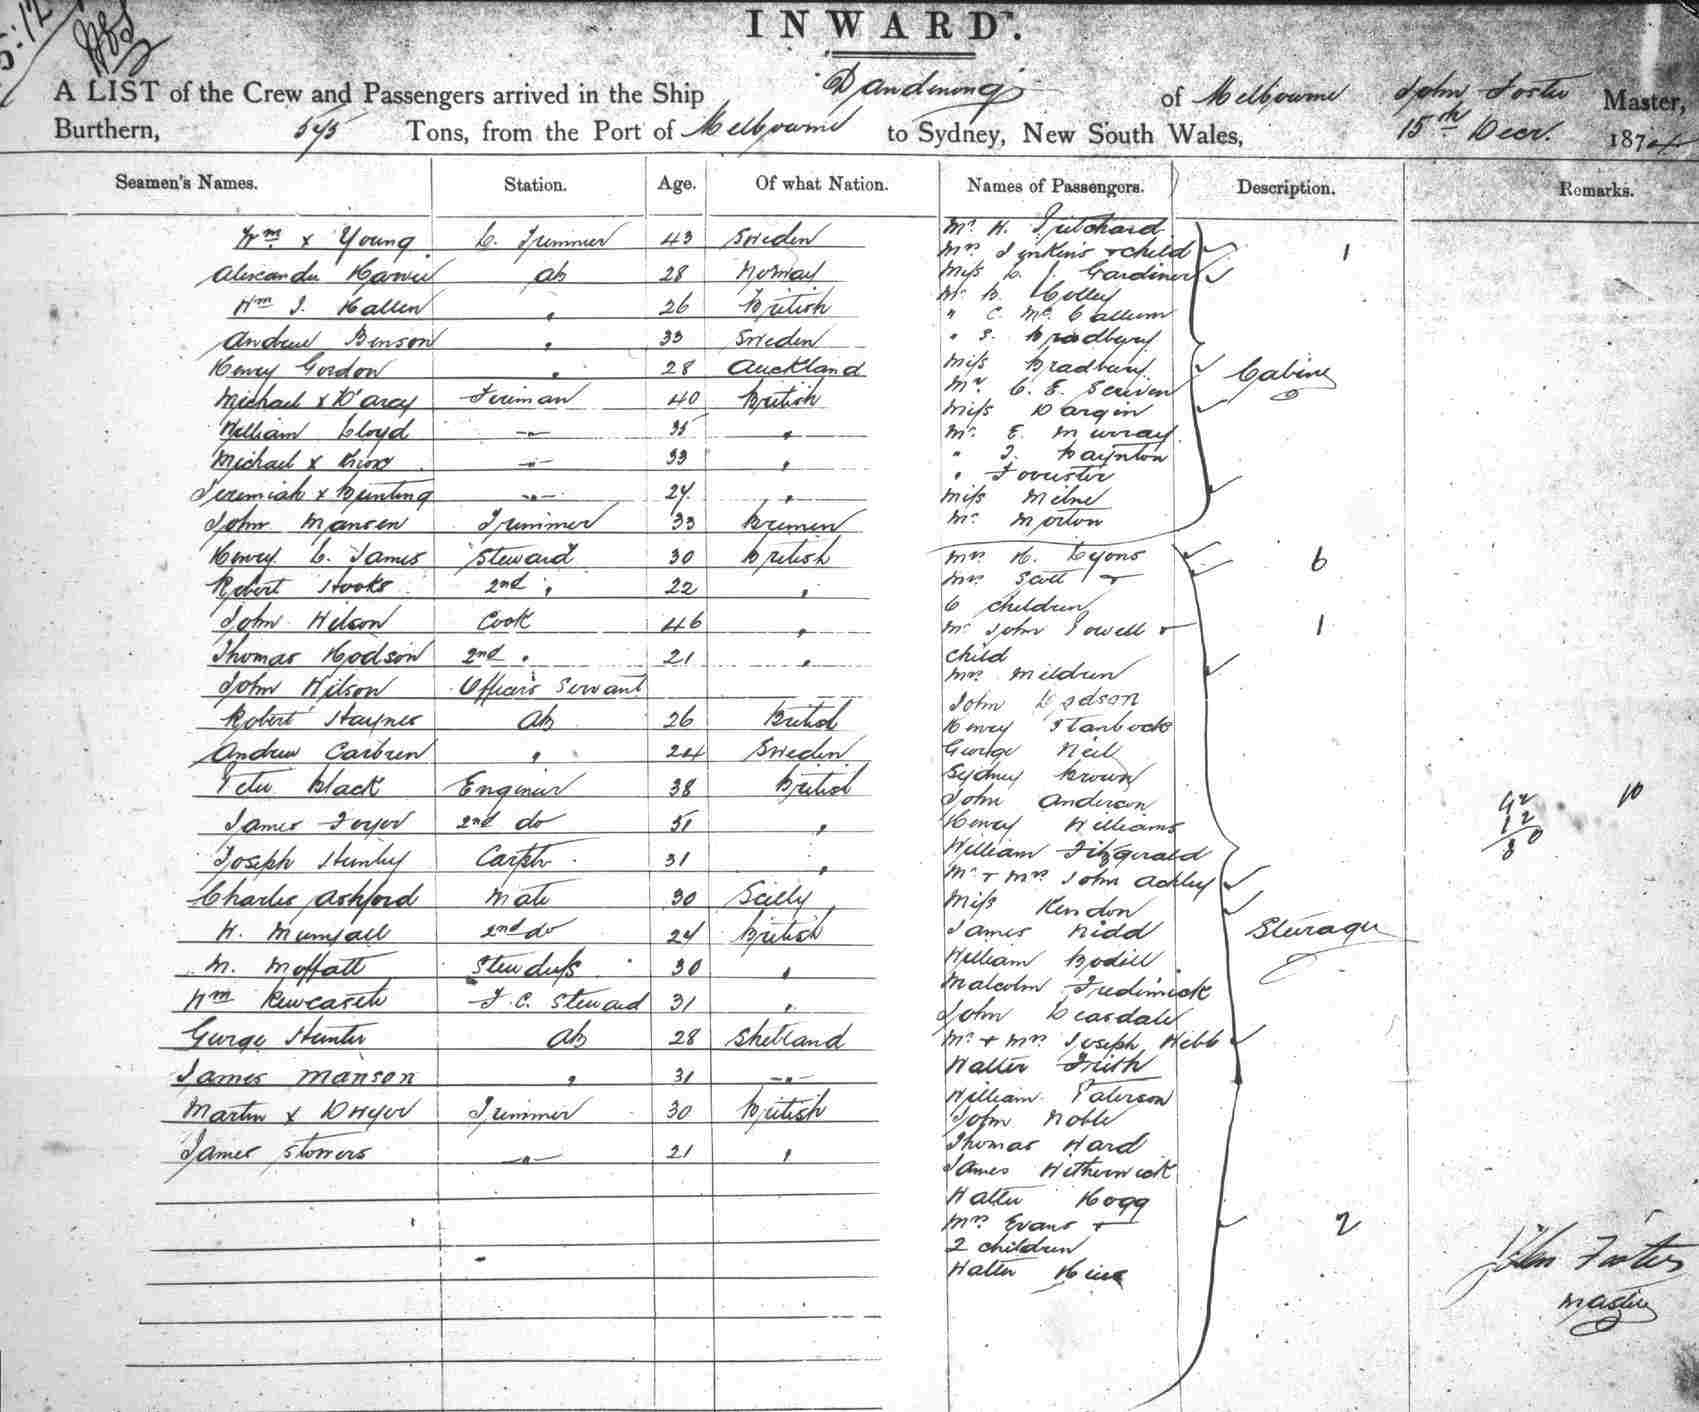 INWARD.
A LIST of the Crew and Passengers arrived in the Ship "Dandenong" of Melbourne John Foster Master,
Burthern, 545 Tons, from the Port of Melbourne to Sydney, New South Wales, 15th Decr. 1874
Seamen's Names. Station. Age. Of what Nation. Names of Passengers. Description. Remarks.
Wm x Young L. Trimmer 43 Sweden
Alexander AB 28 Norway
Wm J. Hallen " 26 British
Andrew Benson " 33 Sweden
Henry Gordon " 28 Auckland
Michael x D'arcy Fireman 40 British
William Lloyd -"- 35 "
Michael x Knox -"- 33 "
Jeremiah x Bunting -"- 27 "
John Mansen Trimmer 33 Bremen
Henry C. James Steward 30 British
Robert Hooks 2nd " 22 "
John Wilson Cook 46 "
Thomas Hodson 2nd " 21 "
John Wilson Officers Servant
Robert Haynes AB 26 British
Andrew Carbren " 24 Sweden
Peter Black Engineer 38 British
James 2nd do 51 "
Joseph Carptr 31 "
Charles Ashford Mate 30 Scilly
W. 2nd do 24 British
M. Moffatt Stewdess 30 "
Wm Newcastle F.C. Steward 31 "
George Hunter AB 28 Shetland
James Manson " 31 -"-
Martin x Dwyer Trimmer 30 British
James Stowers -"- 21 "
Mr W. Pritchard
Mrs Jenkins & child 1
Miss L. J. Gardiner
Mr B. Colley
" C. McCallum
" S. Bradbury
Miss Bradbury
Mr C. E. Scriven
Cabin
Miss Dargin
Mr E. Murray
" J. Baynton
" Forrester
Miss Milne
Mr Morton
Mrs H. Lyons
Mrs Scott & 6
6 children
Mr John Powell & 1
child
Mrs Mildren
John Dodson
Henry Stanbock
George Neil
Sydney Brown
John Anderson
Henry Williams
William Fitzgerald
Mr & Mrs John Ackley
Miss Kendon
James Nidd
Steerage
William Bodill
Malcolm Fredimick
John Learsdale
Mr & Mrs Joseph Webb
Walter Frith
William Paterson
John Noble
Thomas Ward
James Witherwick
Walter Hogg
Mrs Evans & 2
2 children
Walter
10
John Foster
Master